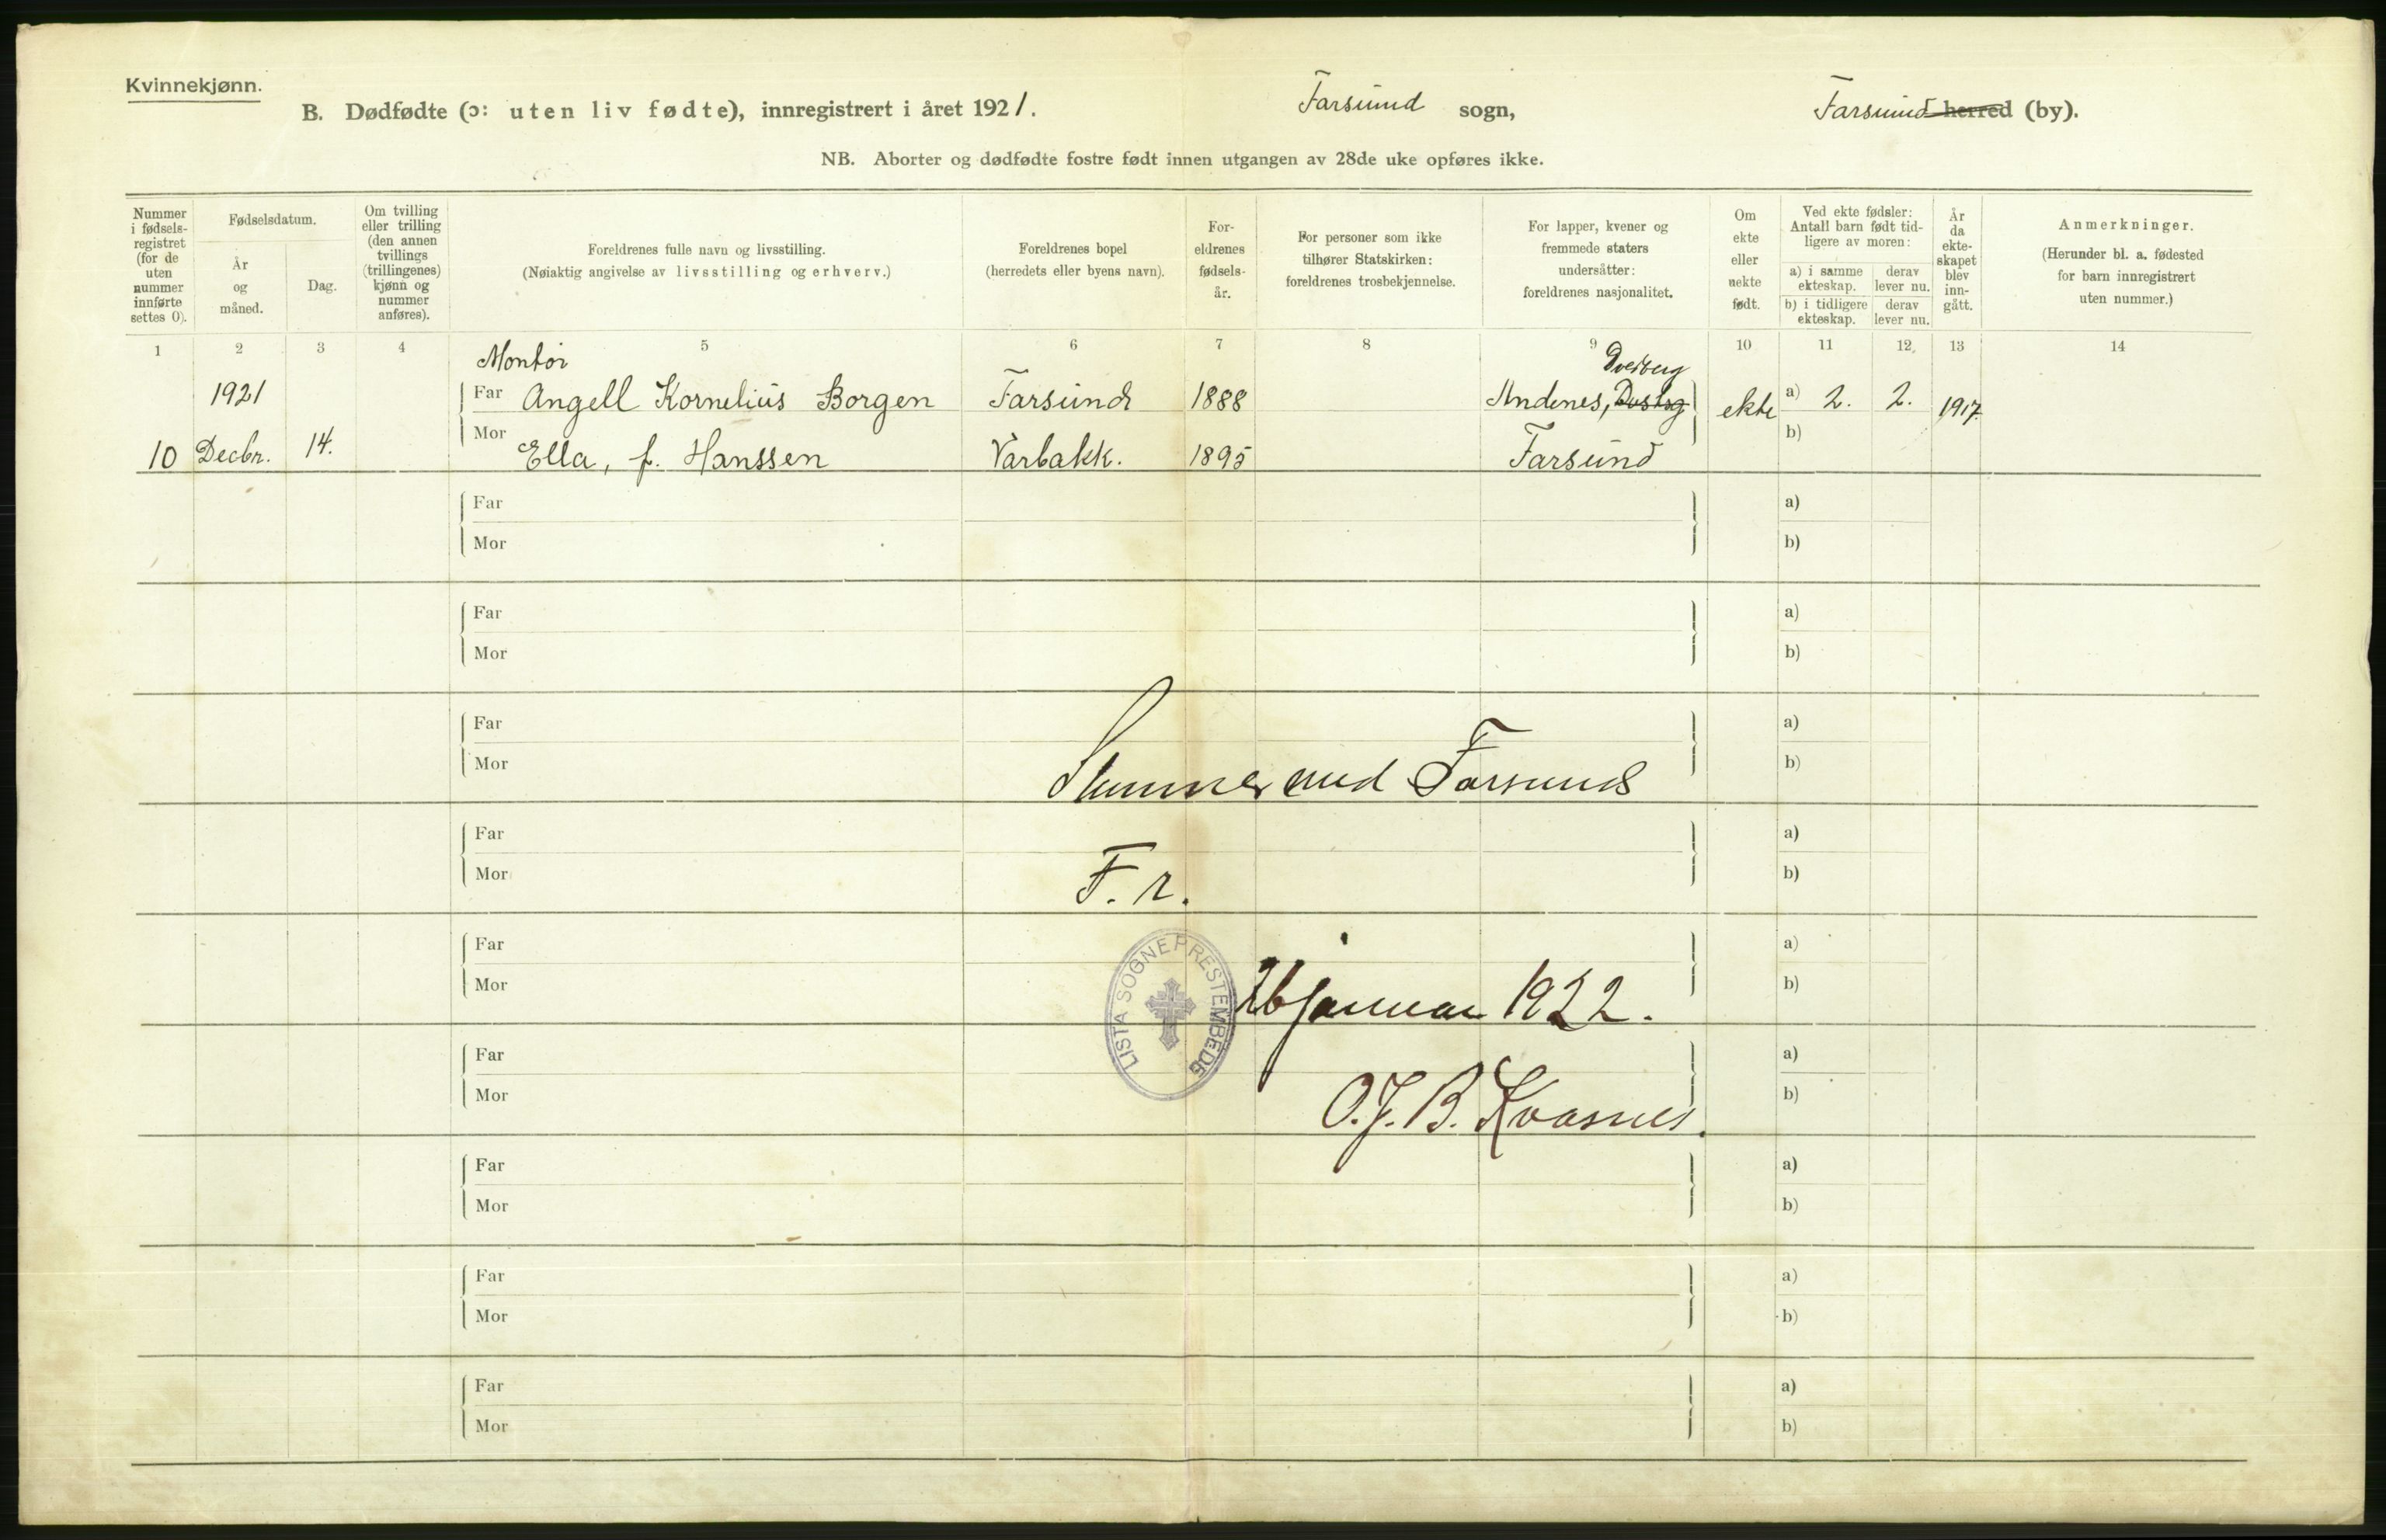 Kvinnekjønn.
B. Dødfødte (ɔ: uten liv fødte), innregistrert i året 1921. Farsund sogn, Farsund herred (by).
NB. Aborter og dødfødte fostre født innen utgangen av 28de uke opføres ikke.
Nummer i fødsels-registret (for de uten nummer innførte settes 0).
Fødselsdatum.
År og måned.
Dag.
Om tvilling eller trilling (den annen tvillings (trillingenes) kjønn og nummer anføres).
Foreldrenes fulle navn og livsstilling.
(Nøiaktig angivelse av livsstilling og erhverv.)
Foreldrenes bopel
(herredets eller byens navn).
For-eldrenes fødsels-år.
For personer som ikke tilhører Statskirken: foreldrenes trosbekjennelse.
For lapper, kvener og fremmede staters undersåtter: foreldrenes nasjonalitet.
Om ekte eller uekte født.
Ved ekte fødsler: Antall barn født tid-ligere av moren:
a) i samme ekteskap.
derav lever nu.
b) i tidligere ekteskap.
derav lever nu.
År da ekte-skapet blev inn-gått.
Anmerkninger.
(Herunder bl. a. fødested for barn innregistrert uten nummer.)
1 2 3 4 5 6 7 8 9 10 11 12 13 14
Montør Dverberg
1921 Far Angell Kornelius Borgen Farsund 1888 Andenes, ekte a) 2. 2. 1917.
10 Decbr. 14. Mor Ella, f. Hanssen Varbakk. 1895 Farsund b)
Far a)
Mor b)
Far a)
Mor b)
Far a)
Mor b)
Stemmer med Farsunds
Far a)
Mor b)
F. r.
Far a)
Mor b)
LISTA SOGNEPRESTEMBEDE
26 januar 1922.
Far a)
Mor b)
O. J. B. Kvasnes.
Far a)
Mor b)
Far a)
Mor b)
Far a)
Mor b)